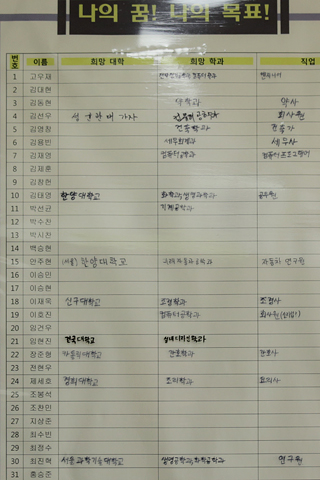 나의 꿈! 나의 목표!
번호 이름 희망 대학 희망 학과 직업
1 고우재
2 김대현
3 김동현 약학과 약사
4 김선우 회사원
5 김영창 건축학과 건축가
6 김용빈 세무회계과 세무사
7 김재영 컴퓨터공학과 컴퓨터프로그래머
8 김제훈
9 김창헌
10 김태영 한양대학교 화학과,생명과학과 공무원
11 박선균 기계공학과
12 박수진
13 박시진
14 백승현
15 안주현 (서울) 한양대학교 자동차 연구원
16 이승민
17 이승현
18 이재욱 신구대학교 조경학과 조경사
19 이호진 컴퓨터공학과 회사원
20 임건우
21 임현진 건국대학교 실내디자인학과
22 장준형 가톨릭대학교 간호학과 간호사
23 전현우
24 제세호 경희대학교 조리학과 요리사
25 조봉석
26 조찬민
27 지상준
28 최수빈
29 최정수
30 최진혁 서울과학기술대학교 생명공학과,화학공학과 연구원
31 홍승준